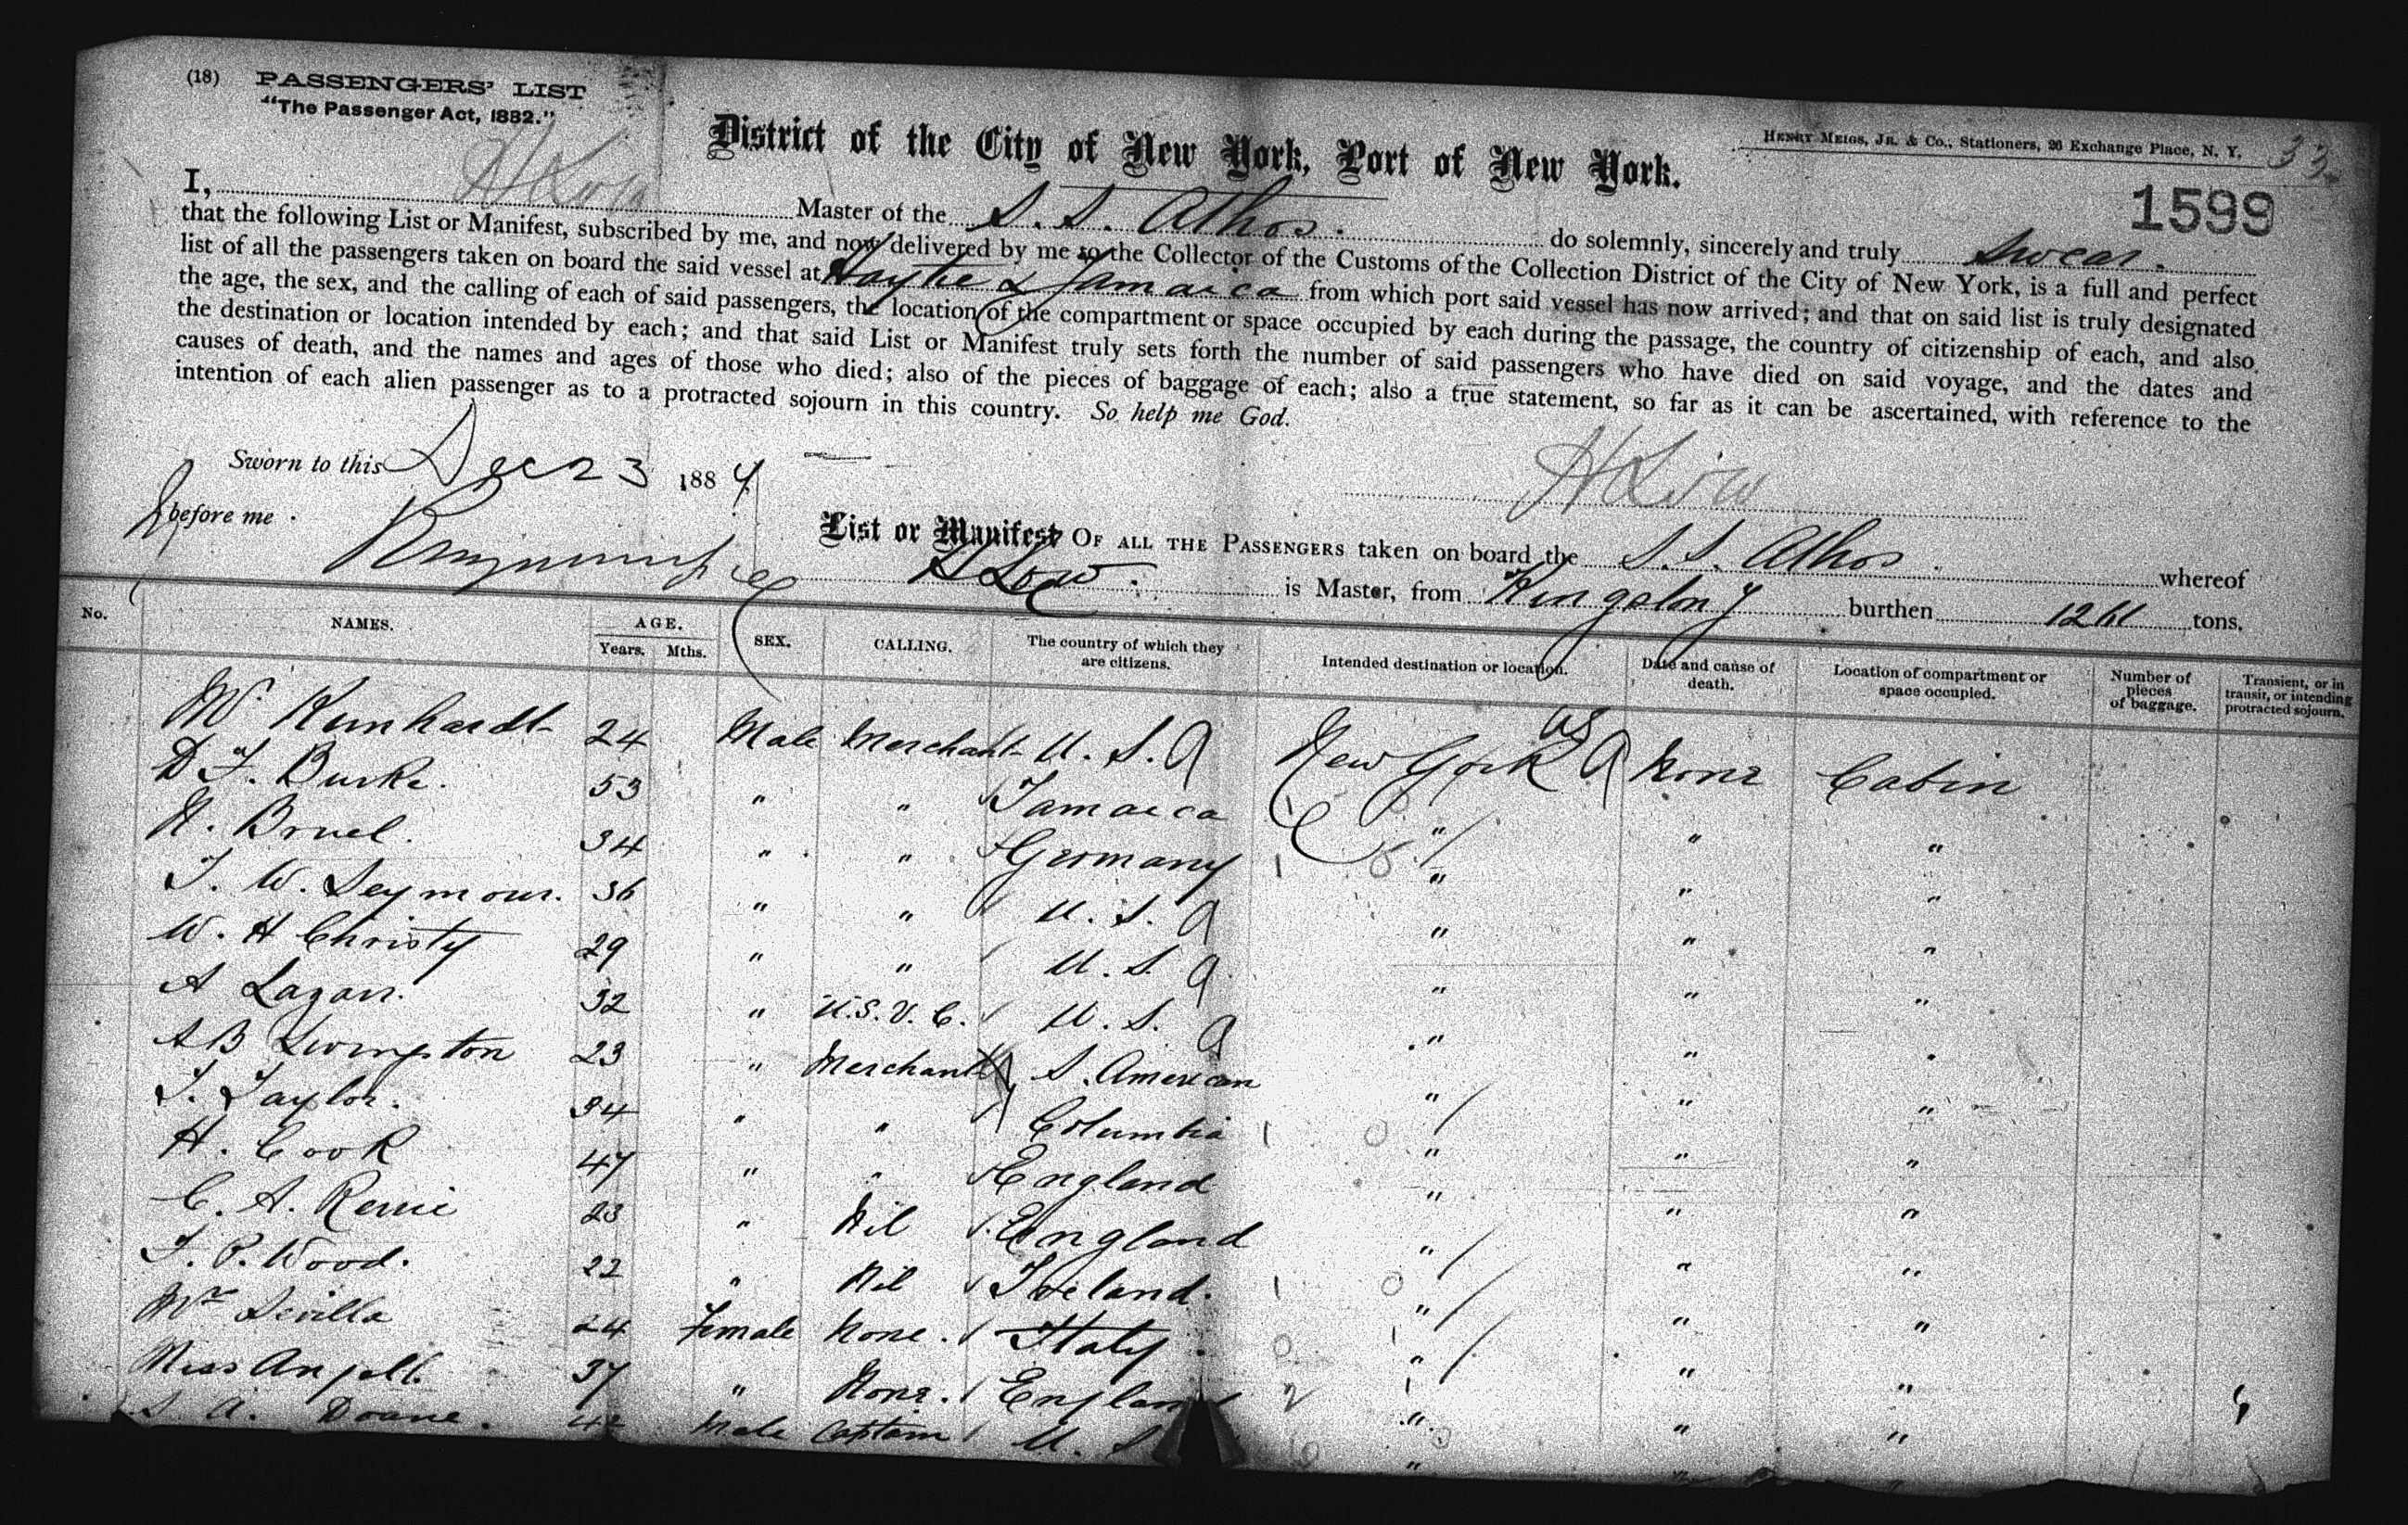 (18) PASSENGERS' LIST
"The Passenger Act, 1882."
District of the City of New York, Port of New York.
HENRY MEIGS, JR. & CO., Stationers, 26 Exchange Place, N. Y.
33
1599
I, H Low Master of the S. S. Athos. do solemnly, sincerely and truly swear.
that the following List or Manifest, subscribed by me, and now delivered by me to the Collector of the Customs of the Collection District of the City of New York, is a full and perfect
list of all the passengers taken on board the said vessel at Haytie & Jamaica from which port said vessel has now arrived; and that on said list is truly designated
the age, the sex, and the calling of each of said passengers, the location of the compartment or space occupied by each during the passage, the country of citizenship of each, and also
the destination or location intended by each; and that said List or Manifest truly sets forth the number of said passengers who have died on said voyage, and the dates and
causes of death, and the names and ages of those who died; also of the pieces of baggage of each; also a true statement, so far as it can be ascertained, with reference to the
intention of each alien passenger as to a protracted sojourn in this country. So help me God.
Sworn to this Dec 23 1884
H Low
before me
List or Manifest OF ALL THE PASSENGERS taken on board the S. S. Athos. whereof
H Low. is Master, from Kingston J burthen 1261 tons.
No. NAMES. AGE. Years. Mths. SEX. CALLING. The country of which they are citizens. Intended destination or location. Date and cause of death. Location of compartment or space occupied. Number of pieces of baggage. Transient, or in transit, or intending protracted sojourn.
W. Kunhardt 24 Male Merchant U. S. A New York USA None Cabin
D F. Burke. 53 " " Jamaica " " "
H. Bruel. 34 " " Germany " " "
J. W. Seymour. 36 " " U. S. A " " "
W. H Christy 29 " " U. S. A " " "
A Lazarr. 32 " U.S.V.C. U. S. A " " "
A B Livingston 23 " Merchant S. American " " "
J. Taylor. 34 " " Columbia " " "
H. Cook 47 " " England " " "
C. A. Rennie 23 " Nil England " " "
J. P. Wood. 22 " Nil Ireland. " " "
Mrs Sevilla 24 Female None. Italy " " "
Miss Angell. 37 " None. England " " "
S. A. Doane. 42 Male Captain U. S " " "